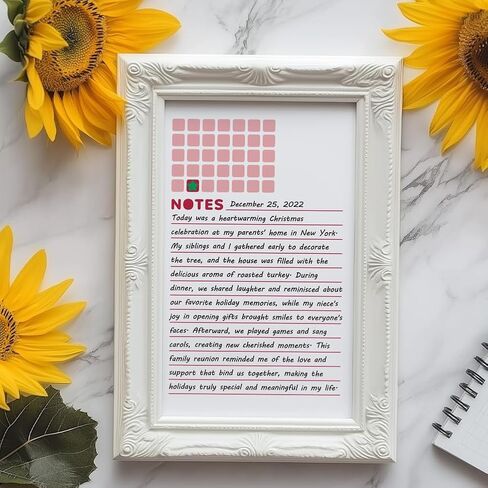 NOTES December 25, 2022
Today was a heartwarming Christmas
celebration at my parents' home in New York.
My siblings and I gathered early to decorate
the tree, and the house was filled with the
delicious aroma of roasted turkey. During
dinner, we shared laughter and reminisced about
our favorite holiday memories, while my niece's
joy in opening gifts brought smiles to everyone's
faces. Afterward, we played games and sang
carols, creating new cherished moments. This
family reunion reminded me of the love and
support that bind us together, making the
holidays truly special and meaningful in my life.